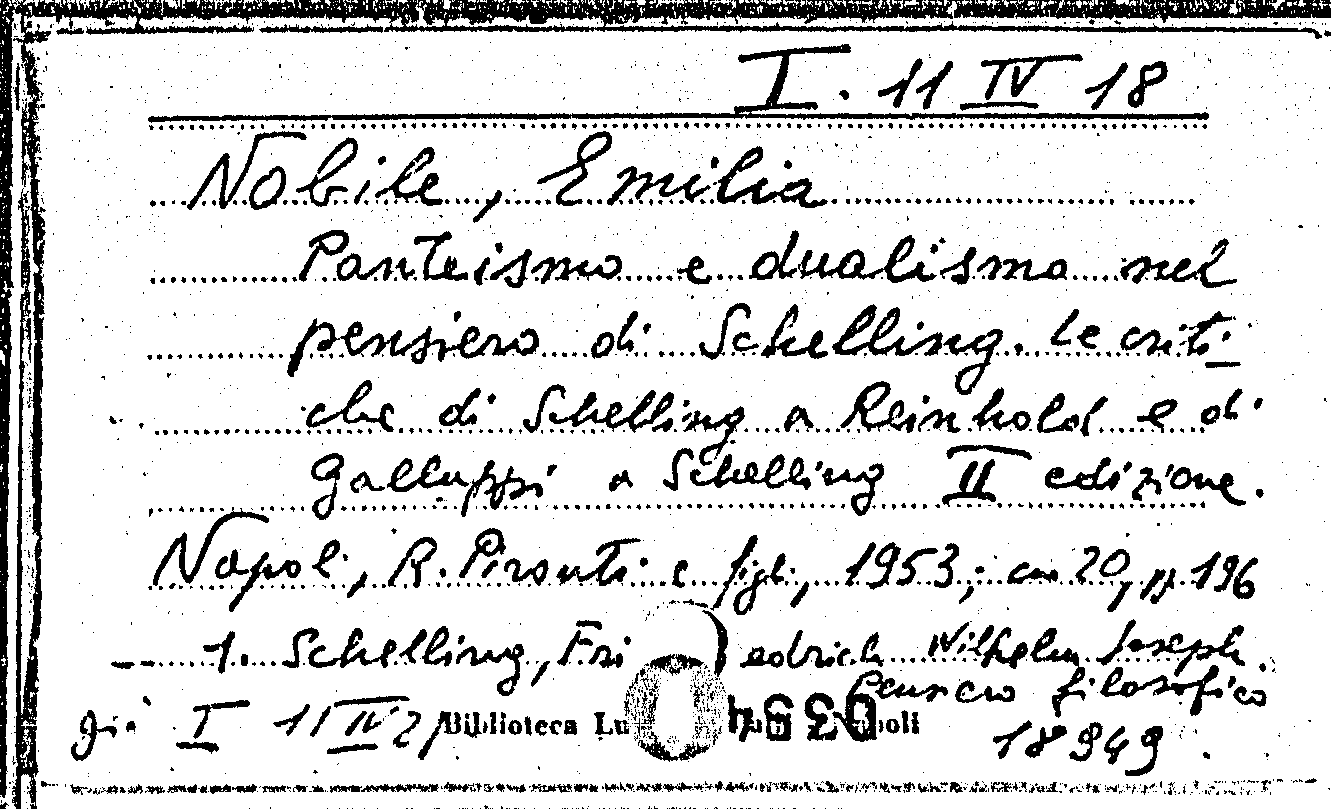 I. 11 IV 18
Nobile, Emilia
Panteismo e dualismo nel
pensiero di Schelling. Le criti-
che di Schelling a Reinhold e di
Galluppi a Schelling II edizione.
Napoli, R. Pironti e figli, 1953; cm 20, pp. 196
1. Schelling, Friedrich Wilhelm Joseph.
Pensiero filosofico
già I 11 IV 21
Biblioteca Lu Napoli
18949